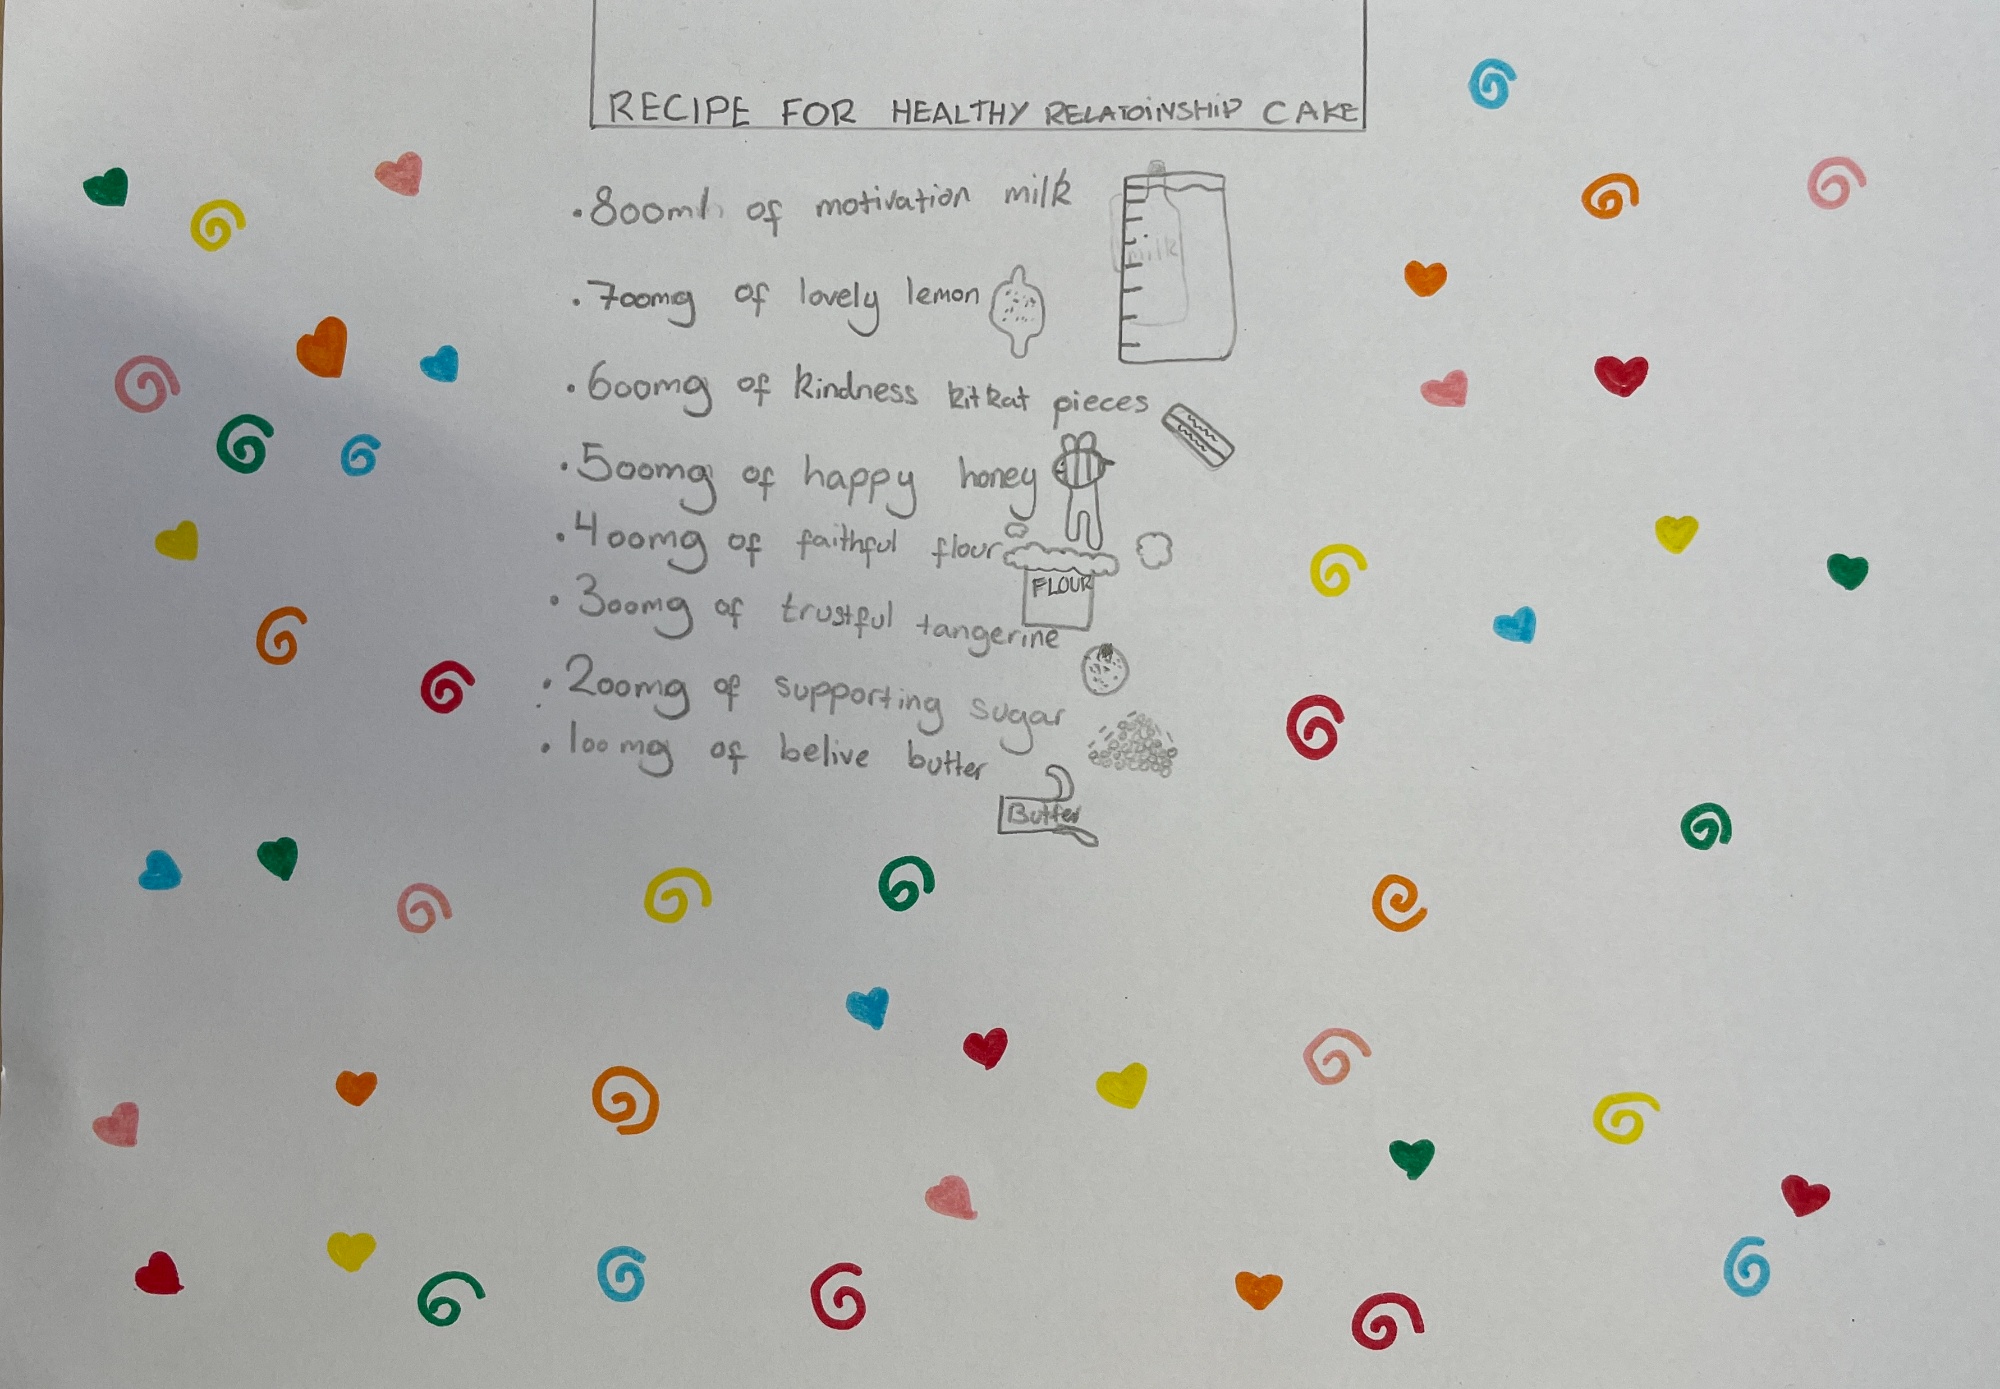 RECIPE FOR HEALTHY RELATOINSHIP CAKE
·800ml of motivation milk
milk
·700mg of lovely lemon
·600mg of kindness kitkat pieces
·500mg of happy honey
·400mg of faithful flour
FLOUR
·300mg of trustful tangerine
·200mg of supporting sugar
·100mg of belive butter
Butter